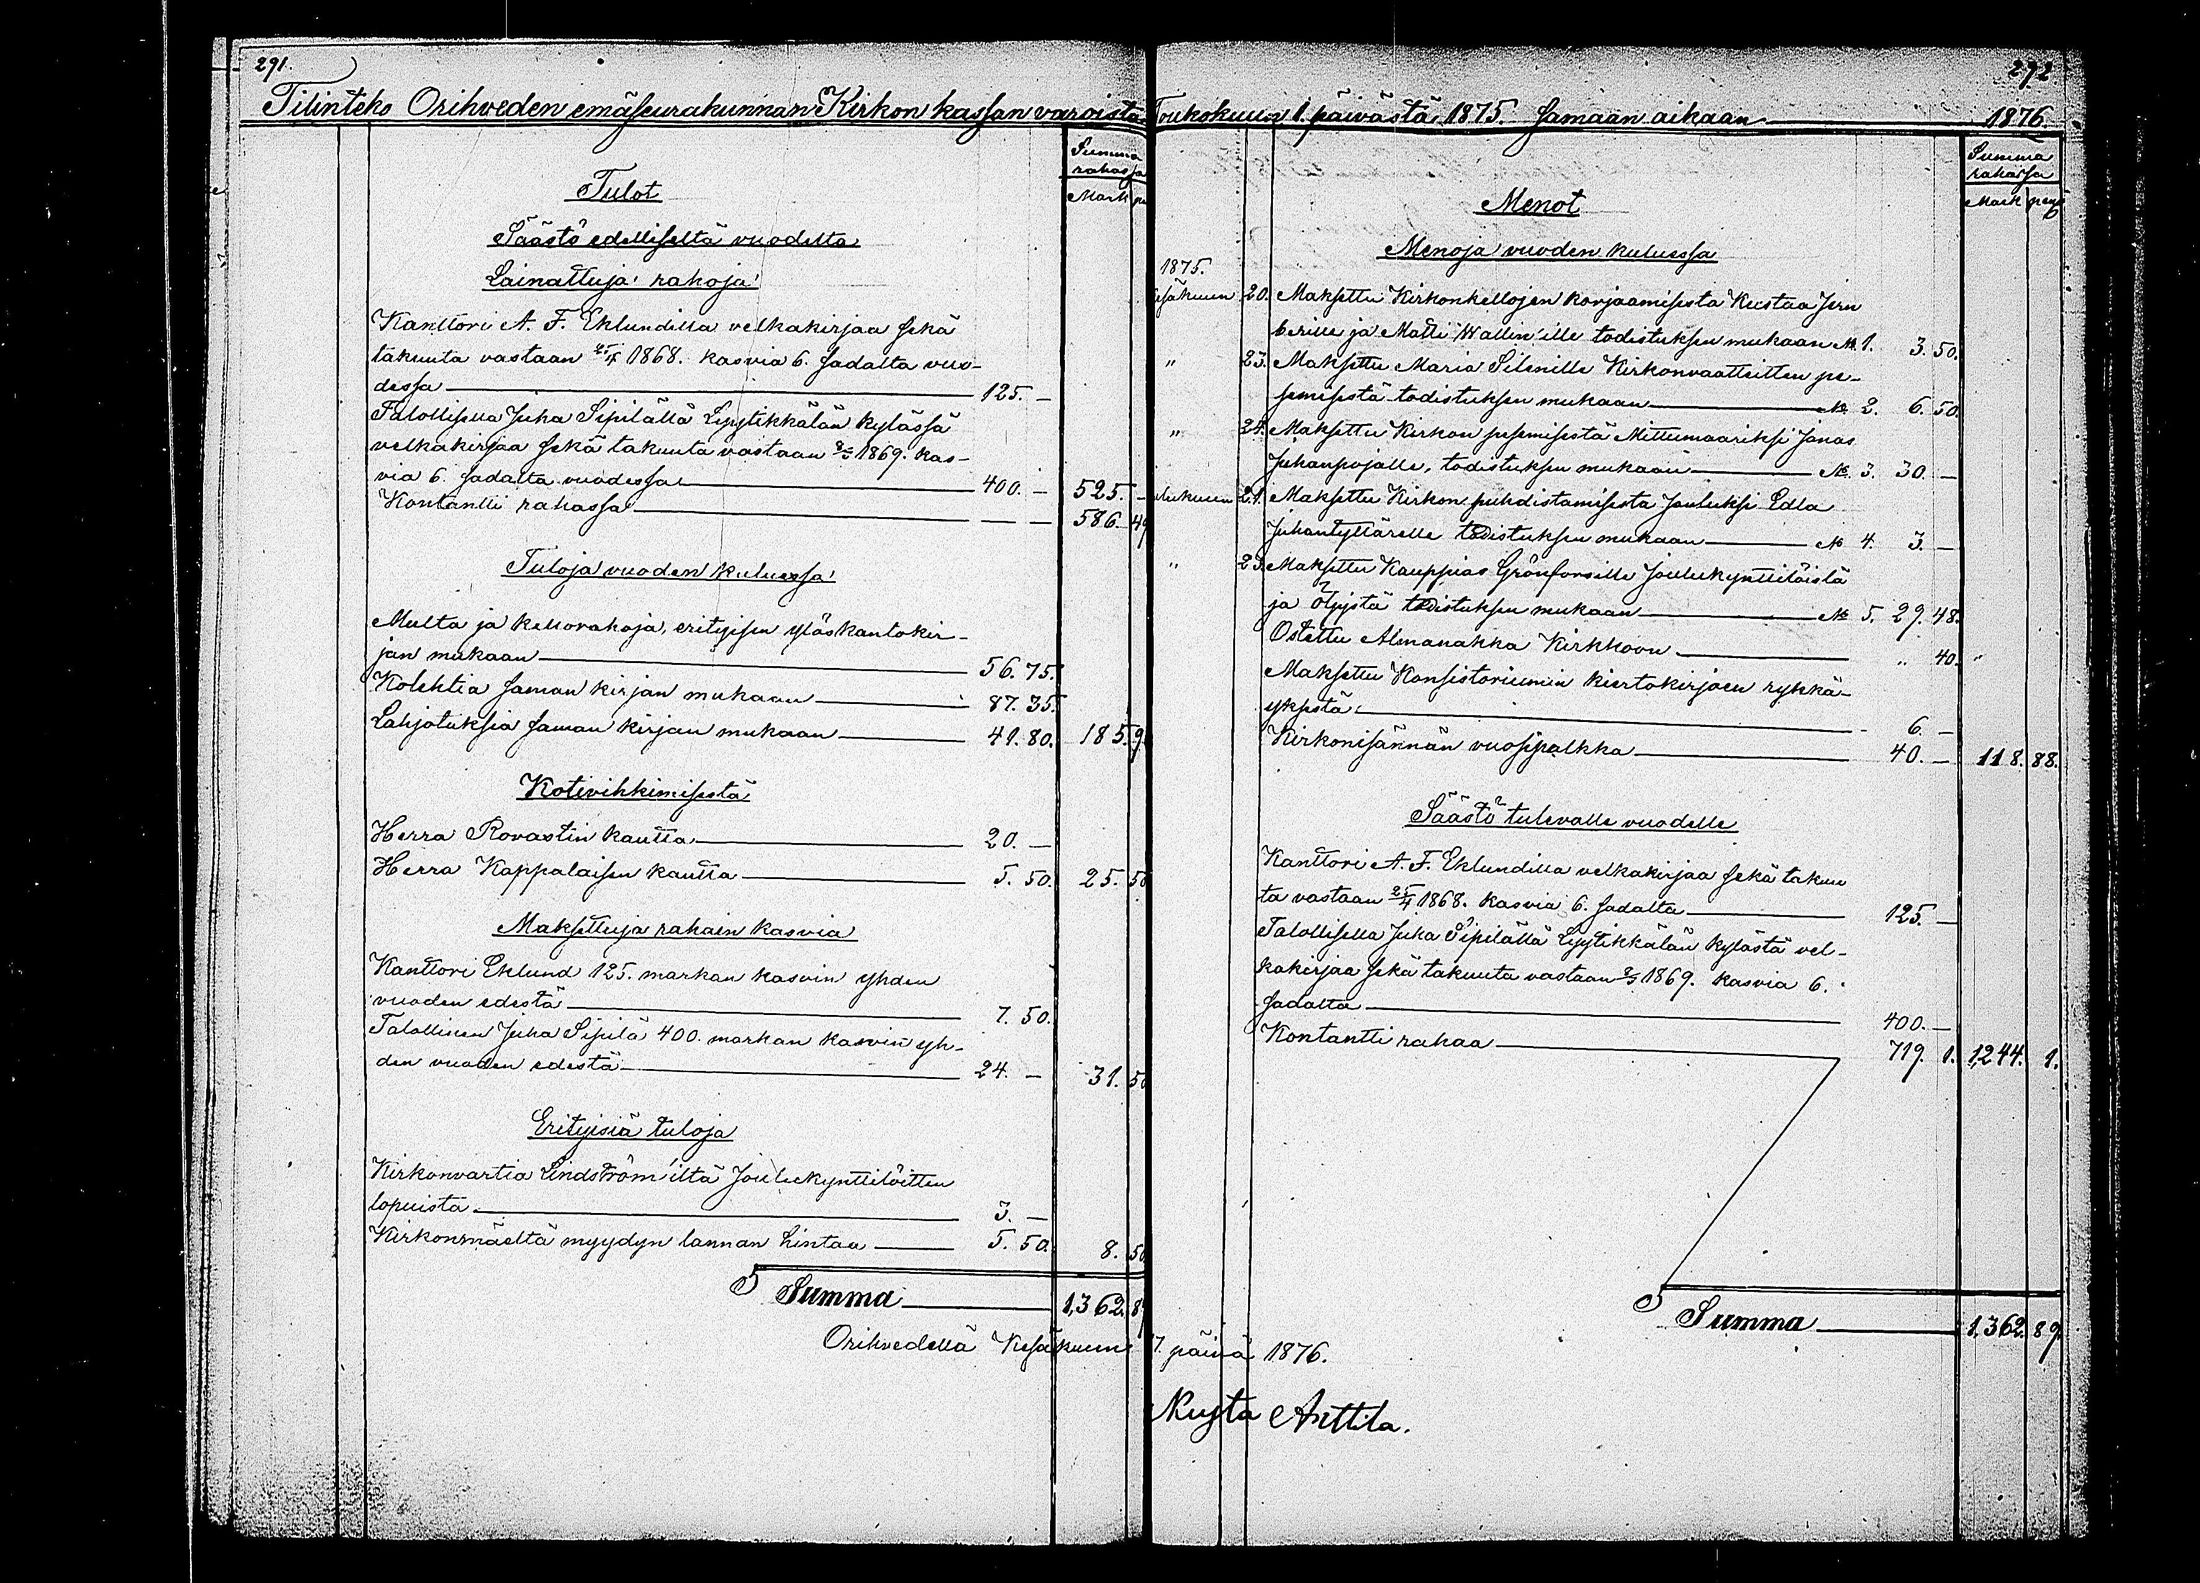 291.
Tilinteko Orihveden emäseurakunnan Kirkon kassan varoista
Summa
rahassa
Mark
Tulot
Säästö edelliseltä vuodelta
Lainattuja rahoja
Kanttori A. F. Eklundilla velkakirjaa sekä
takuuta vastaan 25/4 1868. kasvia 6. sadalta vuo-
dessa 125. —
Talollisella Juha Sipilällä Lyytikkälän kylässä
velkakirjaa sekä takuuta vastaan 1869. kas-
via 6. sadalta vuodessa 400. — 525. —
Kontantti rahassa — — 586. 49
Tuloja vuoden kuluessa
Multa ja kellorahoja, erityisen ylöskantokir-
jan mukaan 56. 75.
Kolehtia saman kirjan mukaan 87. 35.
Lahjotuksia saman kirjan mukaan 41. 80. 185. 9
Kotivihkimisestä
Herra Rovastin kautta 20. —
Herra Kappalaisen kautta 5. 50. 25. 50
Maksettuja rahain kasvia
Kanttori Eklund 125. markan kasvin yhden
vuoden edestä 7. 50.
Talollinen Juha Sipilä 400. markan kasvin yh-
den vuoden edestä 24. — 31. 50
Erityisiä tuloja
Kirkonvartia Lindström'iltä Joulukynttilöitten
lopuista 3. —
Kirkonmäeltä myydyn lannan hintaa 5. 50. 8. 50
Summa 1,362. 89
Orihvedellä Kesäkuun
292
Toukokuun 1. päivästä 1875. samaan aikaan 1876.
Summa
rahassa
Mark penj
Menot
Menoja vuoden kuluessa
1875.
esäkuun 20. Maksettu Kirkonkellojen korjaamisesta Kustaa Jern
berille ja Matti Wallin'ille todistuksen mukaan № 1. 3. 50.
" 23. Maksettu Maria Silenille Kirkonvaatteitten pe-
semisestä todistuksen mukaan № 2. 6. 50.
" 24. Maksettu Kirkon pesemisestä Mittumaariksi Jonas
Juhanpojalle, todistuksen mukaan № 3. 30. —
ulukuun 21. Maksettu Kirkon puhdistamisesta Jouluksi Edla
Juhantyttärelle todistuksen mukaan № 4. 3. —
" 23. Maksettu Kauppias Grönforsille Joulukynttilöistä
ja Öljystä todistuksen mukaan № 5. 29. 48.
Ostettu Almanakka Kirkkoon " 40. "
Maksettu Konsistoriumin kiertokirjoen rykkä-
yksestä 6. —
Kirkonisännän vuosipalkka 40. — 118. 88.
Säästö tulevalle vuodelle
Kanttori A. F. Eklundilla velkakirjaa sekä takuu
ta vastaan 25/4 1868. kasvia 6. sadalta 125. —
Talollisella Juha Sipilällä Lyytikkälän kylästä vel-
kakirjaa sekä takuuta vastaan 1869. kasvia 6.
sadalta 400. —
Kontantti rahaa 719. 1. 1,244. 1.
Summa 1,362. 89
7. päivä 1876.
Kusta Anttila.